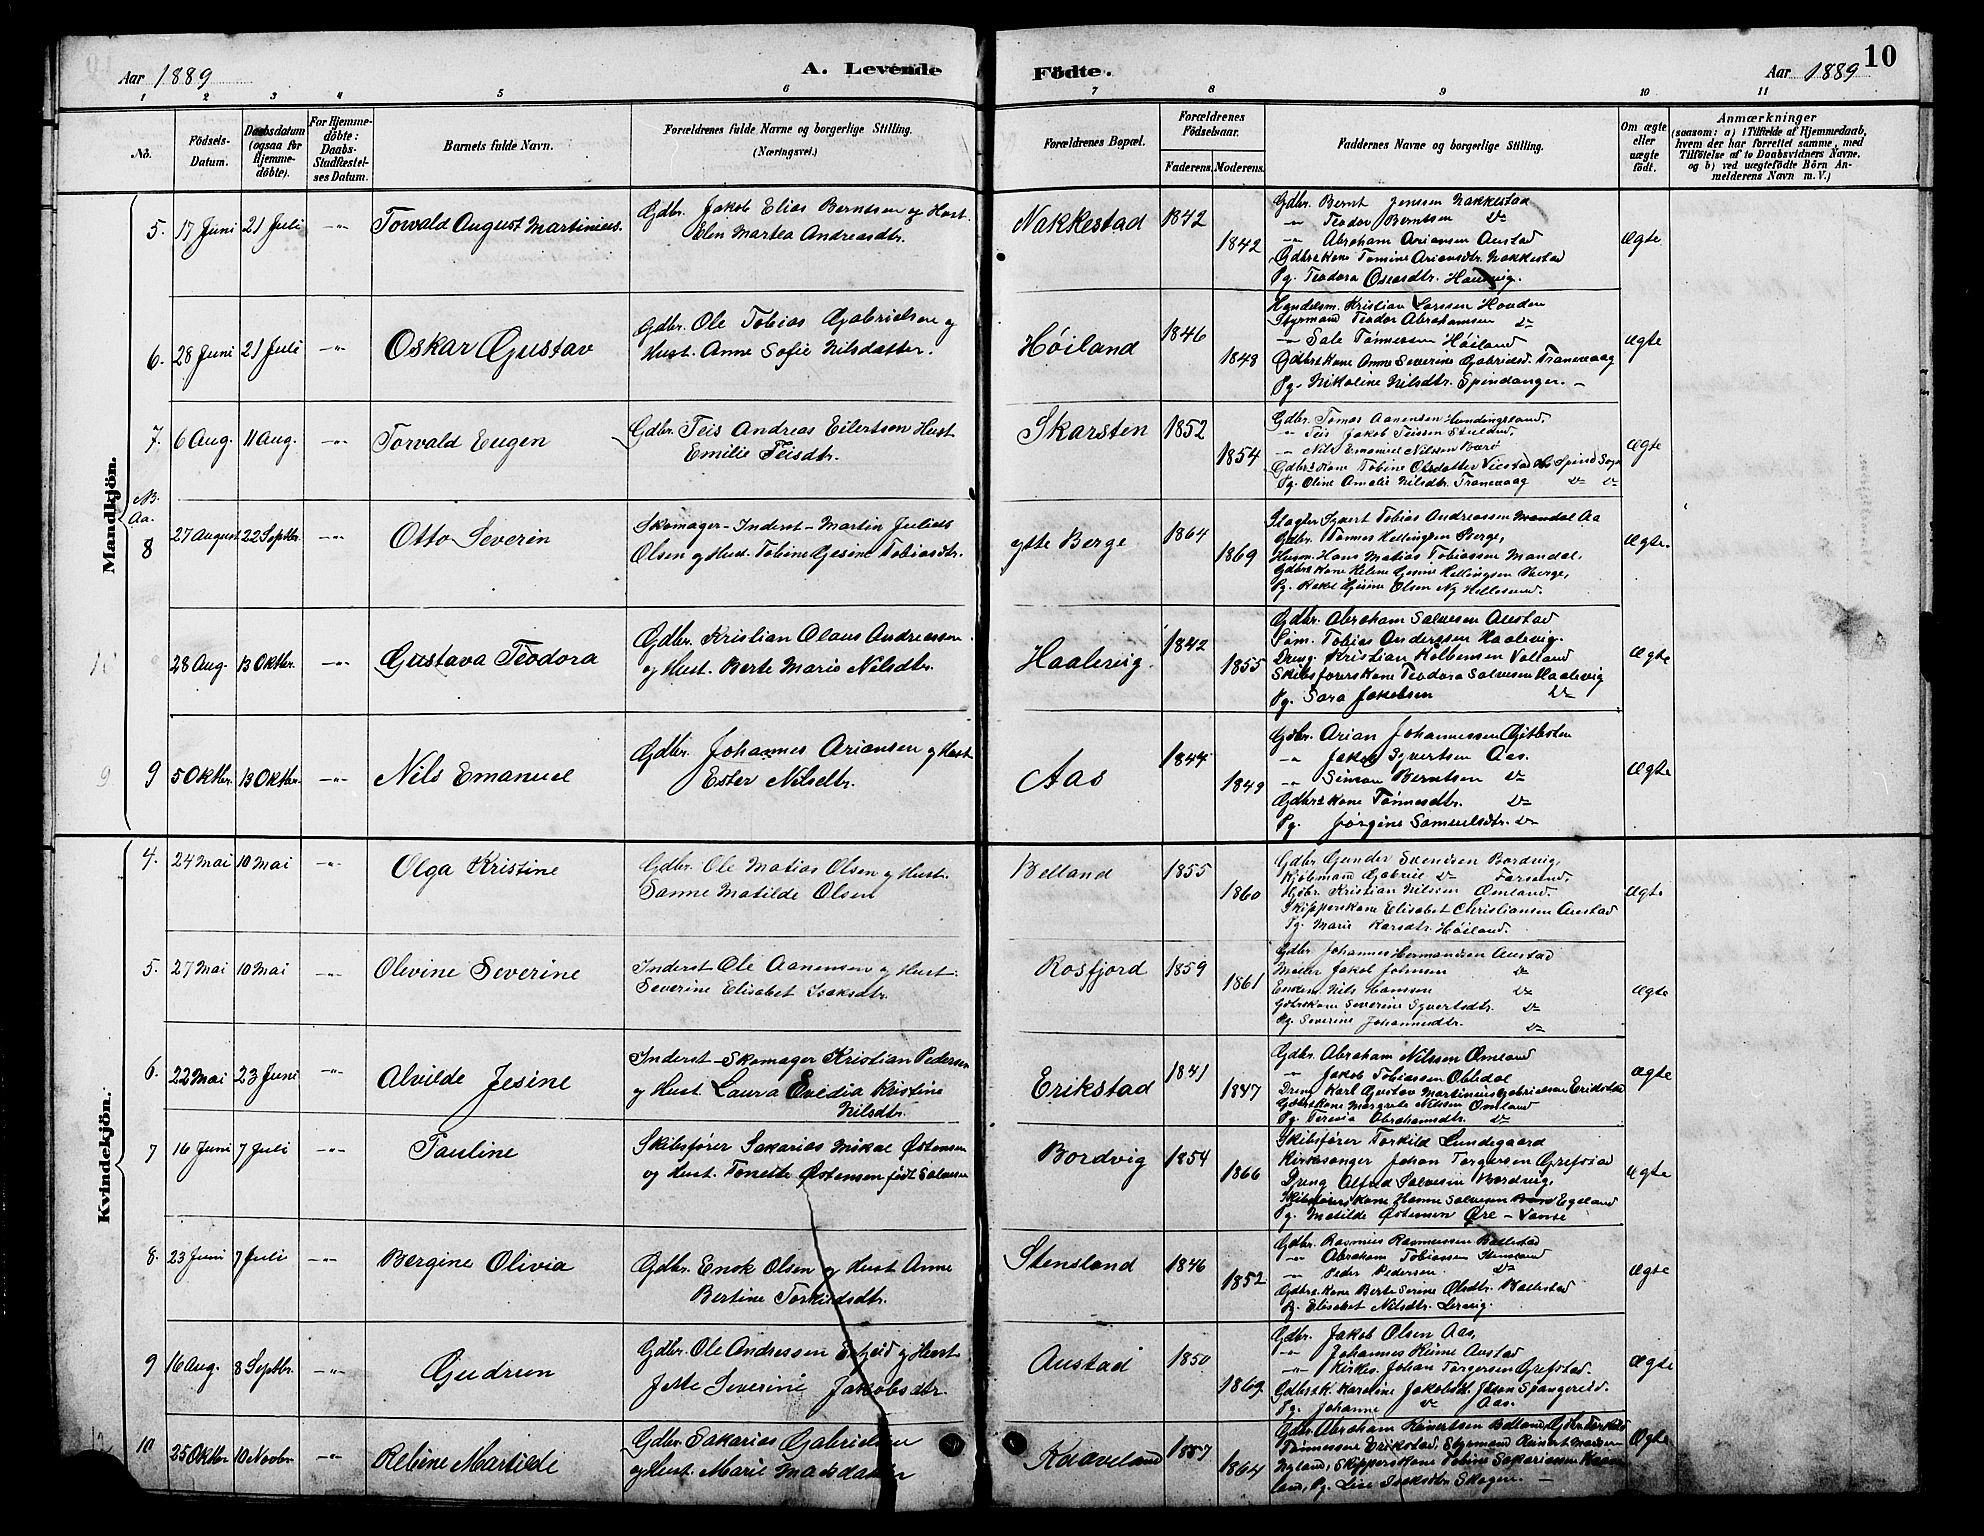 Aar 1889
A. Levende
Födte.
Aar 1889
10
1 2 3 4 5 6 7 8 9 10 11
No.
Födsels-Datum.
Daabsdatum (ogsaa for Hjemmedöbte).
For Hjemmedöbte: Daabs-Stadfæstelses Datum.
Barnets fulde Navn.
Forældrenes fulde Navne og borgerlige Stilling. (Næringsvei.)
Forældrenes Bopæl.
Forældrenes Födselsaar.
Faderens. Moderens.
Faddernes Navne og borgerlige Stilling.
Om ægte eller uægte födt.
Anmærkninger
(saasom: a) i Tilfælde af Hjemmedaab, hvem der har forrettet samme, med Tilföielse af to Daabsvidners Navne, og b) ved uægtefödte Börn Anmelderens Navn m. V.)
Mandkjön.
5. 17 Juni 21 Juli -"- Torvald August Martinius.
Gdbr. Jakob Elias Berntsen og Hust.
Elen Martea Andreasdtr.
Nakkestad 1842 1842
Gdbr. Bernt Jenssen Nakkestad
-"- Teodor Berntsen Do
-"- Abraham Ariansen Austad
Gdbrs Kone Tomine Ariansdtr. Nakkestad
Pg. Teodora Oseasdtr.
Ægte
6. 28 Juni 21 Juli -"- Oskar Gustav
Gdbr. Ole Tobias Gabrielsen og
Hust. Anne Sofie Nilsdatter.
Høiland 1846 1848
Handelsm. Kristian Larssen Houden
Styrmand Teodor Abrahamsen Do
-"- Sale Tønnessen Høiland
Gdbrs Kone Anne Severine Gabrielsd. Tranevaag
Pg. Nikoline Nilsdtr. Spindanger.
Ægte
7. 6 Aug. 11 Aug. -"- Torvald Eugen
Gdbr. Teis Andreas Eilertsen Hust
Emilie Teisdtr.
Skarsten 1852 1854
Gdbr. Tomas Aanensen
-"- Teis Jakob Teissen
-"- Nils Emanuel Nilssen
Gdbrs Kone Tobine Olsdatter Spind Sogn
Pg. Oline Amalie Nilsdtr. Tranevaag Do Do
Ægte
8 27 August 22 Septbr. -"- Otto Severin
Skomager-Inderst-Martin Julius
Olsen og Hust. Tobine Gesine Tobiasdtr.
ytte Berge 1864 1869
Slagter Syvert Tobias Andreassen Mandal Aa
Gdbr. Tønnes Hellingsen Berge,
Husm. Hans Matias Tobiassen Mandal,
Gdbrs Kone Helene Gesine Hellingsen Berge,
Pg. Rakel Olsen Ny Hellesund.
Ægte.
10 28 Aug. 13 Oktbr. -"- Gustava Teodora
Gdbr. Kristian Olaus Andreassen
og Hust. Berte Marie Nilsdtr.
Haalevig. 1842 1855
Gdbr. Abraham Salvesen Austad
Søm. Tobias Anderssen Haalevig.
Dreng. Kristian Kolbensen Valland
Skibsførers Kone Teodora Salvesen Haalevig
Pg. Sara Jakobsen Do
Ægte
9 9 5 Oktbr. 13 Oktbr. -"- Nils Emanuel
Gdbr. Johannes Ariansen og Hust
Ester Nilsdtr.
Aas 1844 1849
Gdbr. Arian Johannessen
-"- Jakob Syvertsen Aas.
-"- Simon Berntsen Do
Gdbrs Kone Tønnesdtr. Do
Pg. Jørgine Samuelsdtr. Do
Ægte
Kvindekjön.
4. 24 Mai 10 Mai -"- Olga Kristine
Gdbr. Ole Matias Olsen og Hust.
Sanne Matilde Olsen
Belland 1855 1860
Gdbr. Gunder Svendsen Bordvig,
Kjøbmand Gabriel Do Farsund,
Gdbr. Kristian Nilssen Omland.
Skippers Kone Elisabet Christiansen Austad
Pg. Marie Larsdtr. Høiland.
Ægte
5. 27 Mai 10 Mai -"- Olevine Severine
Inderst Ole Aanensen og Hust.
Severine Elisabet Isaksdtr.
Rosfjord 1859 1861
Gdbr. Johannes Hermandsen Austad
Maler Jakob Johnsen Do
Enkem. Nils Hanssen Do
Gdbrs Kone Severine Syvertsdtr. Do
Pg. Severine Johannesdtr. Do
Ægte
6. 22 Mai 23 Juni -"- Alvilde Jesine
Inderst-Skomager Kristian Pedersen
og Hust. Laura Evedia Kristine
Nilsdtr.
Erikstad 1841 1847
Gdbr. Abraham Nilssen Omland
-"- Jakob Tobiassen Obedal
Dreng Karl Gustav Martinius Gabrielsen Erikstad
Gdbrs Kone Margrete Nilssen Omland
Pg. Teresia Abrahamsdtr. Do
Ægte
7 16 Juni 7 Juli -"- Pauline
Skibsfører Sakarias Mikal Østensen
og Hust. Tonette Østensen født Salvesen
Bordvig 1854 1866
Skibsfører Torkild Lundegaard
Kirkesanger Johan Torgersen Grefstad
Dreng Alfred Salvesen Bordvig,
Skibsførers Kone Hanne Salvesen Egeland
Pg. Matilde Østensen Øre - Vanse
Ægte
8. 23 Juni 7 Juli -"- Bergine Olivia
Gdbr. Enok Olsen og Hust. Anne
Bertine Torkildsdtr.
Stensland 1846 1852
Gdbr. Rasmus Rasmussen Ballestad
-"- Abraham Tobiassen Stensland
-"- Peder Pedersen Do
Gdbrs Kone Berte Serine Olsdtr. Ballestad
Pg. Elisabet Nilsdtr. Lervig.
Ægte
9 16 Aug. 8 Septbr. -"- Gudrun
Gdbr. Ole Andreassen og Hust
Jette Severine Jakobsdtr.
Austad 1850 1869
Gdbr. Jakob Olsen Aas,
-"- Johannes Austad
-"- Kirkes. Johan Torgersen Grefstad.
Gdbrs K. Karoline Jakobsd. Spangereid.
Pg. Johanne Do Aas.
Ægte
12 10 25 Oktbr 10 Novbr -"- Reline Martilde
Gdbr. Sakarias Gabrielsen
og Hust. Marie Madsdatter
Kvaveland 1857 1864
Gdbr. Abraham Reinertsen Belland, Gdbr. Torkild
Tønnessen Erikstad, Styrmand Reinert Madsen
Nyland, Skippers Kone Tobine Sakariassen
land, Pg. Lise Isaksdtr. Skogen.
Ægte